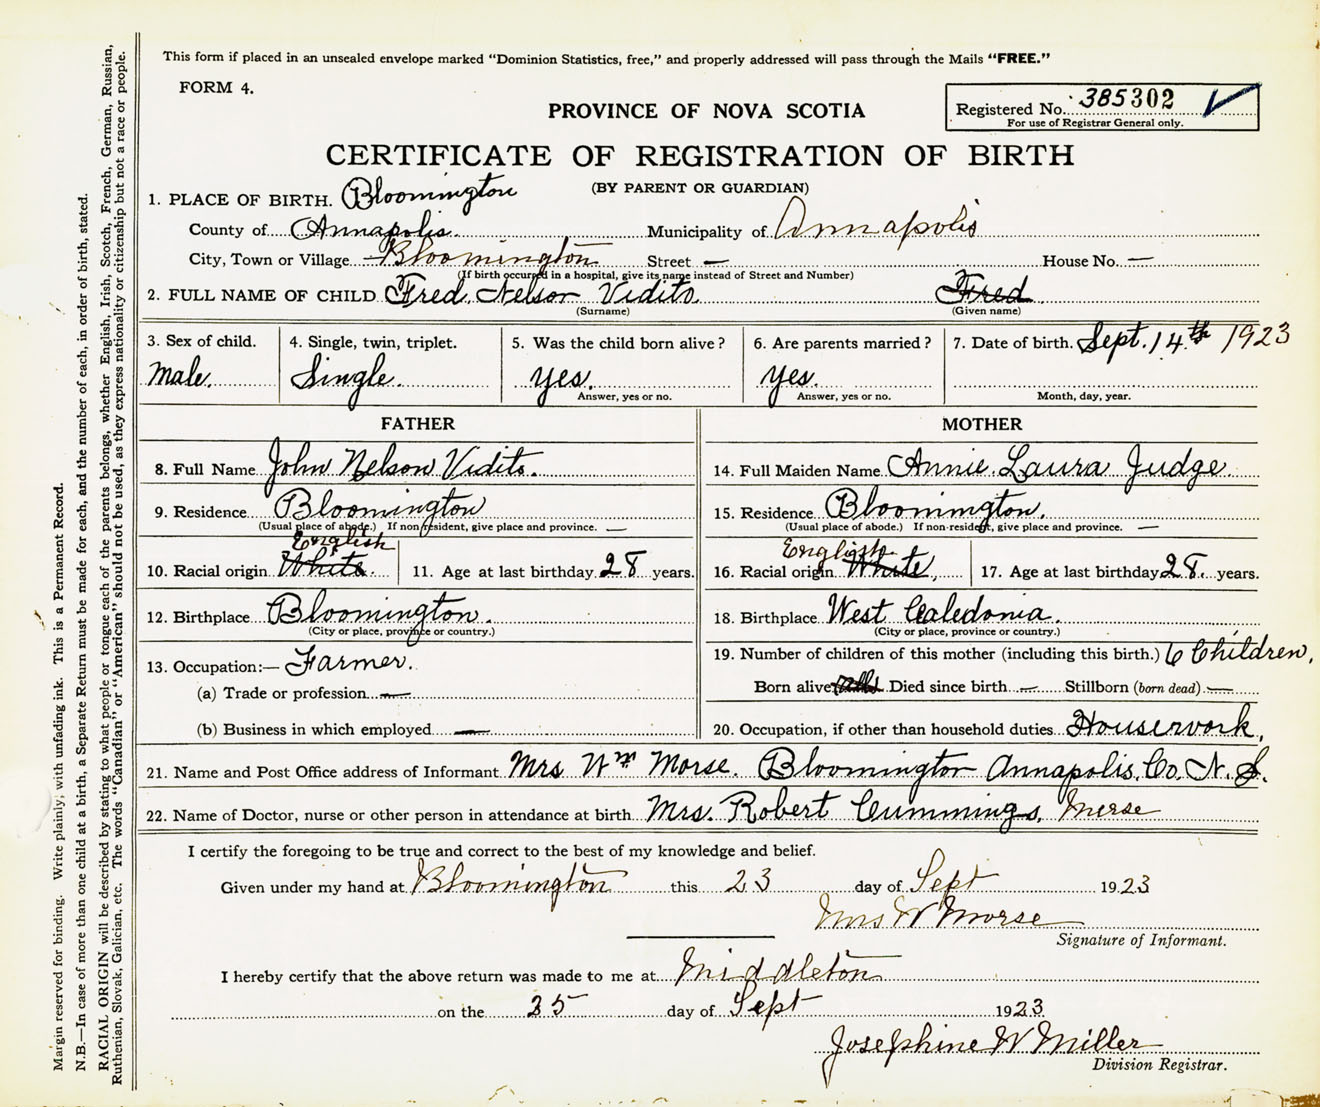 This form if placed in an unsealed envelope marked "Dominion Statistics, free," and properly addressed will pass through the Mails "FREE."
FORM 4.
PROVINCE OF NOVA SCOTIA
Registered No. 385302
For use of Registrar General only.
CERTIFICATE OF REGISTRATION OF BIRTH
(BY PARENT OR GUARDIAN)
1. PLACE OF BIRTH. Bloomington
County of Annapolis. Municipality of Annapolis
City, Town or Village Bloomington Street — House No. —
(If birth occurred in a hospital, give its name instead of Street and Number)
2. FULL NAME OF CHILD Fred. Nelson Vidito Fred
(Surname) (Given name)
3. Sex of child. 4. Single, twin, triplet. 5. Was the child born alive? 6. Are parents married? 7. Date of birth. Sept. 14th 1923
Male. Single. yes. yes.
Answer, yes or no. Answer, yes or no. Month, day, year.
FATHER MOTHER
8. Full Name John Nelson Vidito. 14. Full Maiden Name Annie Laura Judge
9. Residence Bloomington 15. Residence Bloomington.
(Usual place of abode.) If non-resident, give place and province. — (Usual place of abode.) If non-resident, give place and province. —
English English
10. Racial origin White. 11. Age at last birthday 28 years. 16. Racial origin White, 17. Age at last birthday 28. years.
12. Birthplace Bloomington. 18. Birthplace West Caledonia.
(City or place, province or country.) (City or place, province or country.)
13. Occupation:— Farmer. 19. Number of children of this mother (including this birth.) 6 Children.
(a) Trade or profession — Born alive Died since birth — Stillborn (born dead) —
(b) Business in which employed — 20. Occupation, if other than household duties Housework.
21. Name and Post Office address of Informant Mrs Wm Morse. Bloomington Annapolis. Co. N. S.
22. Name of Doctor, nurse or other person in attendance at birth Mrs. Robert Cummings. Nurse
I certify the foregoing to be true and correct to the best of my knowledge and belief.
Given under my hand at Bloomington this 23 day of Sept 1923
Mrs W Morse
Signature of Informant.
I hereby certify that the above return was made to me at Middleton
on the 25 day of Sept 1923
Josephine W Miller
Division Registrar.
Margin reserved for binding. Write plainly, with unfading ink. This is a Permanent Record.
N.B.—In case of more than one child at a birth, a Separate Return must be made for each, and the number of each, in order of birth, stated.
RACIAL ORIGIN will be described by stating to what people or tongue each of the parents belongs, whether English, Irish, Scotch, French, German, Russian,
Ruthenian, Slovak, Galician, etc. The words "Canadian" or "American" should not be used, as they express nationality or citizenship but not a race or people.